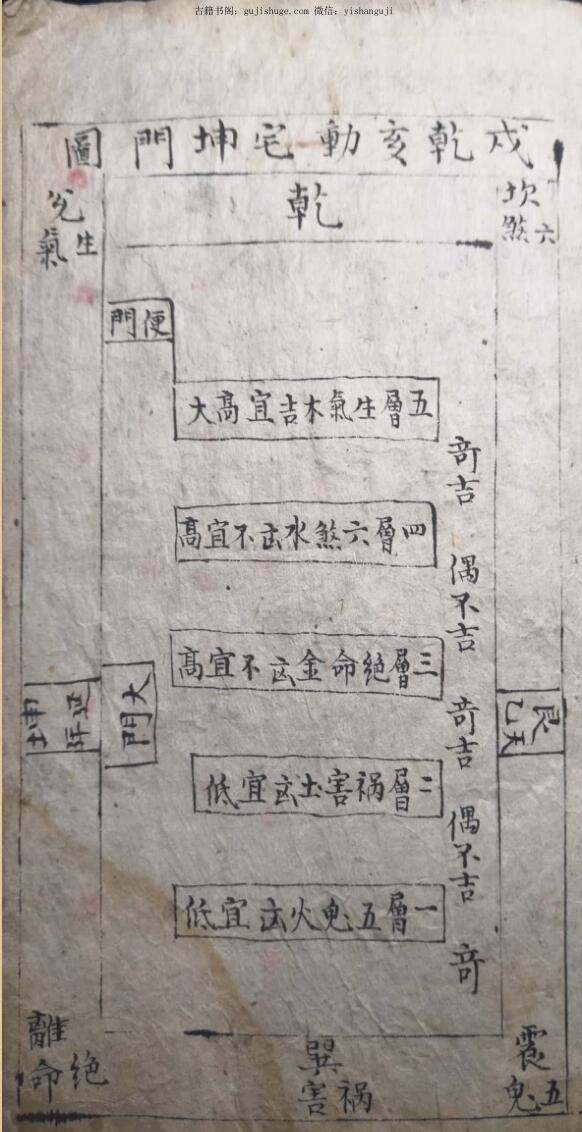 古籍书阁：gujishuge.com 微信：yishanguji
戍乾亥動宅坤門圖
乾
坎
六煞
兌
生氣
便門
五層生氣木吉宜高大
四層六煞水㐫不宜高
三層絶命金㐫不宜高
二層禍害土㐫宜低
一層五鬼火㐫宜低
竒吉
偶不吉
竒吉
偶不吉
竒
大門
艮
天乙
坤
延年
震
五鬼
巽
禍害
離
絶命